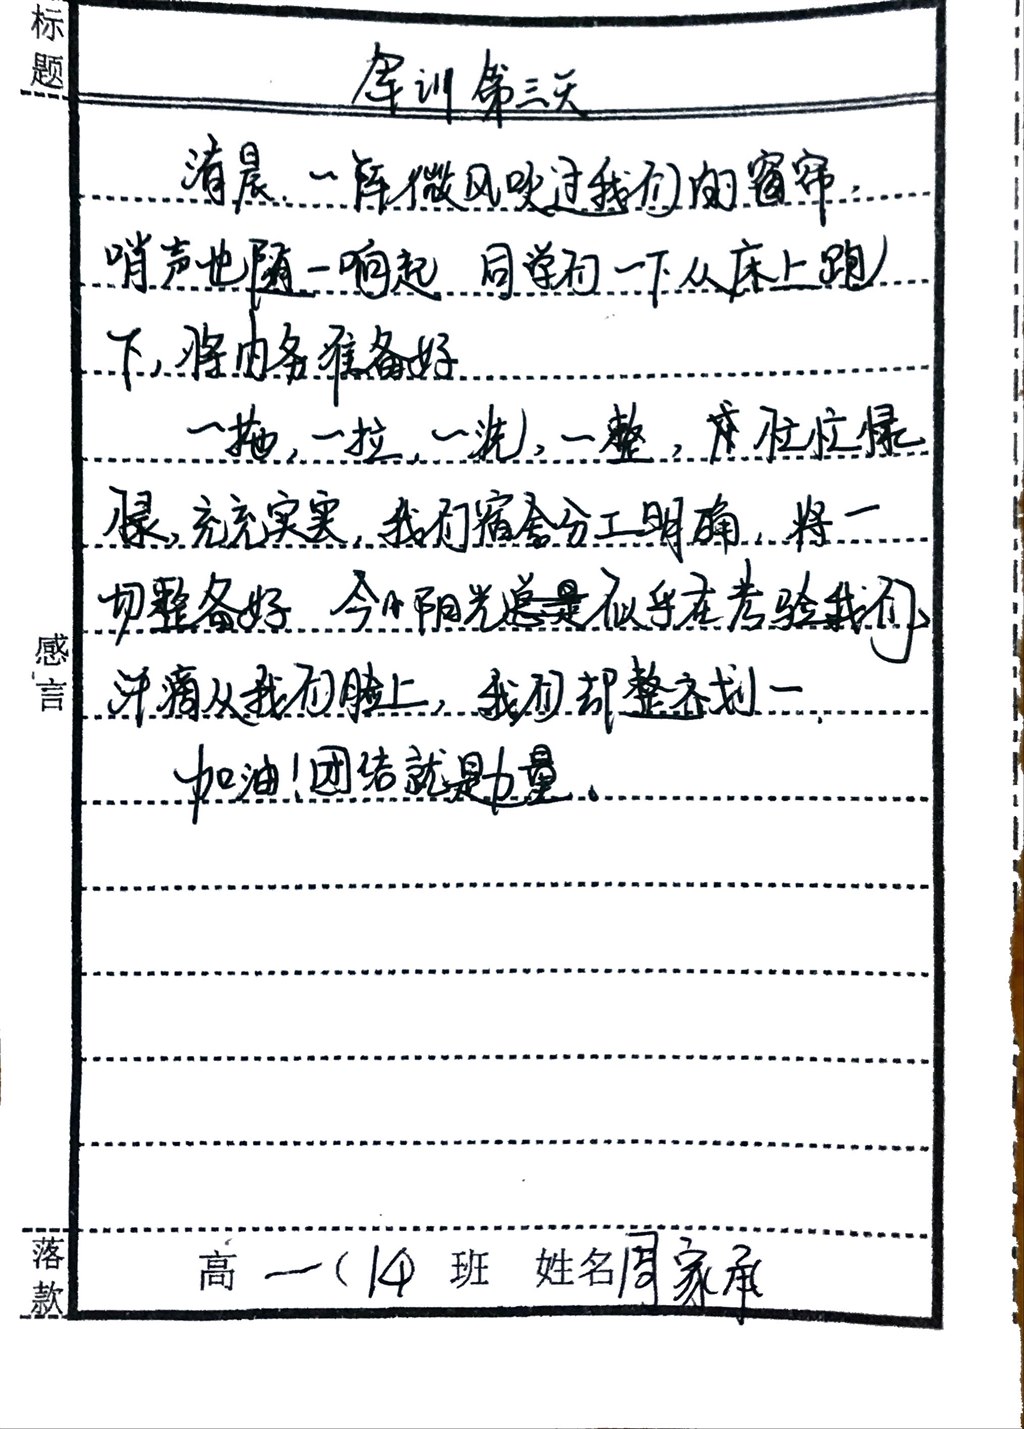 标题
军训第三天
清晨、一阵微风吹过我们的窗帘，
哨声也随一响起 同学们一下从床上跑
下，将内务准备好
一拖，一拉，一洗，一整，忙忙碌
碌，充充实实，我们宿舍分工明确，将一
切整备好 今日阳光似乎在考验我们，
汗滴从我们脸上，我们却整齐划一，
加油！团结就是力量。
感言
落款
高一（14）班 姓名周家承